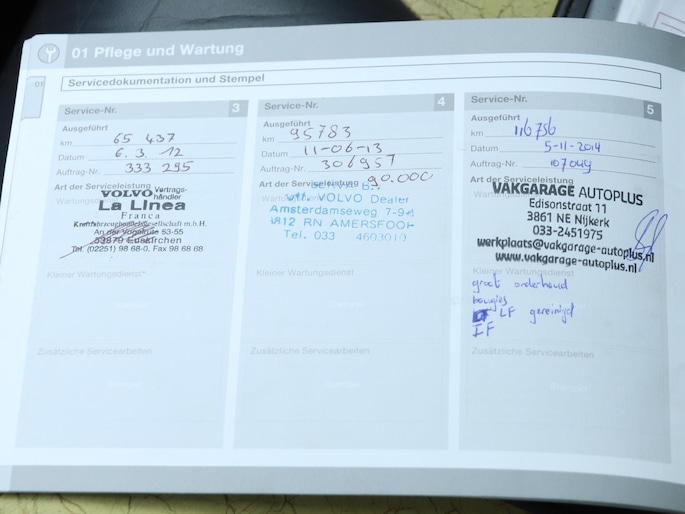 01 Pflege und Wartung
01
Servicedokumentation und Stempel
Service-Nr. 3
Ausgeführt
km 65 437
Datum 6. 3. 12
Auftrag-Nr. 333 295
Art der Serviceleistung
VOLVO Vertrags-
händler
La Linea
Franca
Kraftfahrzeughandelsgesellschaft m.b.H.
An der Vogelrute 53-55
53879 Euskirchen
Tel. (02251) 98 68-0, Fax 98 68 68
Kleiner Wartungsdienst*
Stempel
Zusätzliche Servicearbeiten
Stempel
Service-Nr. 4
Ausgeführt
km 95783
Datum 11-06-13
Auftrag-Nr. 306957
Art der Serviceleistung 90.000
VOLVO Dealer
Amsterdamseweg 7-9
3812 RN AMERSFOORT
Tel. 033 4603010
Kleiner Wartungsdienst
Stempel
Zusätzliche Servicearbeiten
Stempel
Service-Nr. 5
Ausgeführt
km 116756
Datum 5-11-2014
Auftrag-Nr. 107049
Art der Serviceleistung
VAKGARAGE AUTOPLUS
Edisonstraat 11
3861 NE Nijkerk
033-2451975
werkplaats@vakgarage-autoplus.nl
www.vakgarage-autoplus.nl
Kleiner Wartungsdienst
groot onderhoud
bougies
LF gereinigd
IF
Zusätzliche Servicearbeiten
Stempel